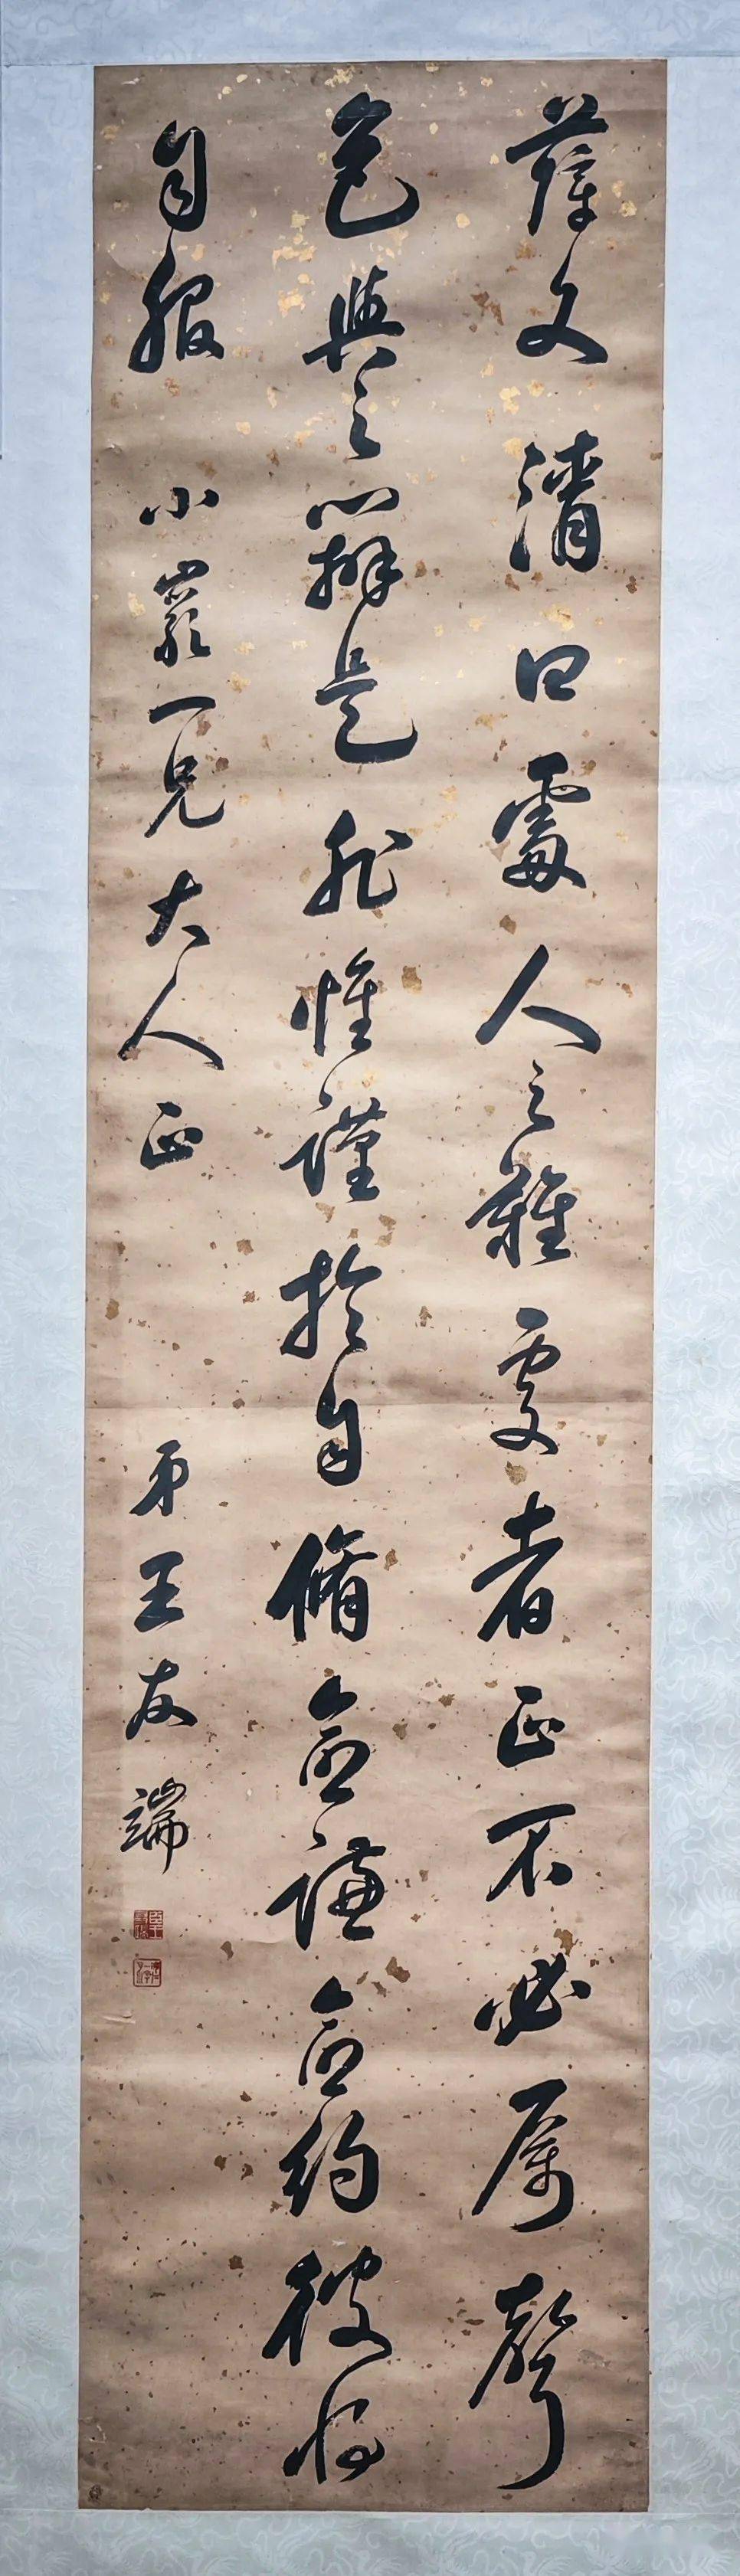 薛文清曰處人之難處者正不必厲聲
色與之辯是非惟謹於自脩愈謙愈約彼將
自服 小巖一兄大人正 弟王友端